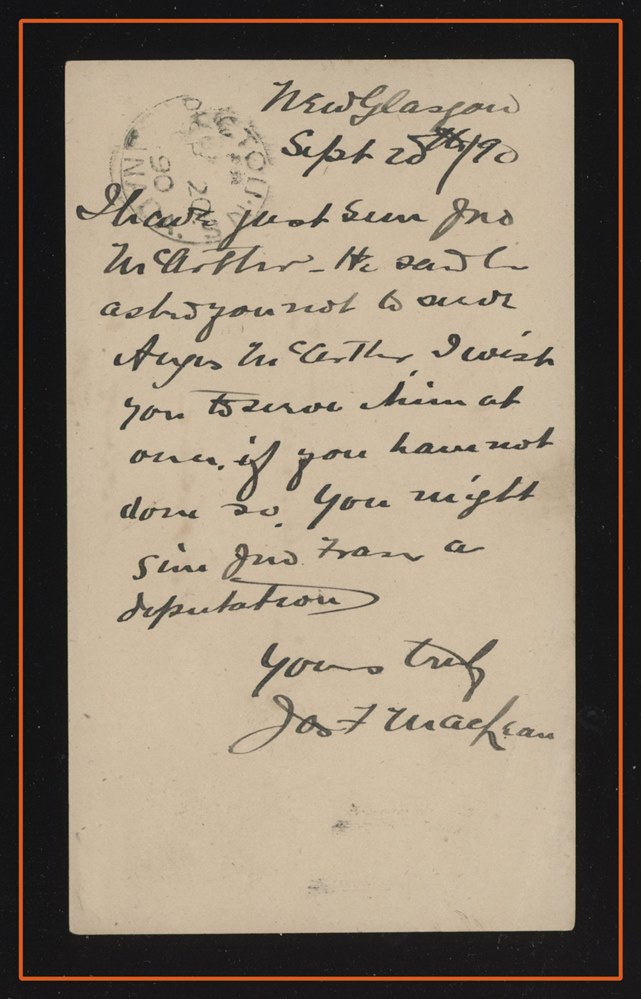 New Glasgow
Sept 20th/90
PICTOU. N.
SP 20
90
I have just seen Jno
McArthur - He said he
asked you not to serve
Angus McArthur, I wish
you to serve him at
once, if you have not
done so. You might
give Jno Fraser a
deputation
Yours truly
Jas F MacLean